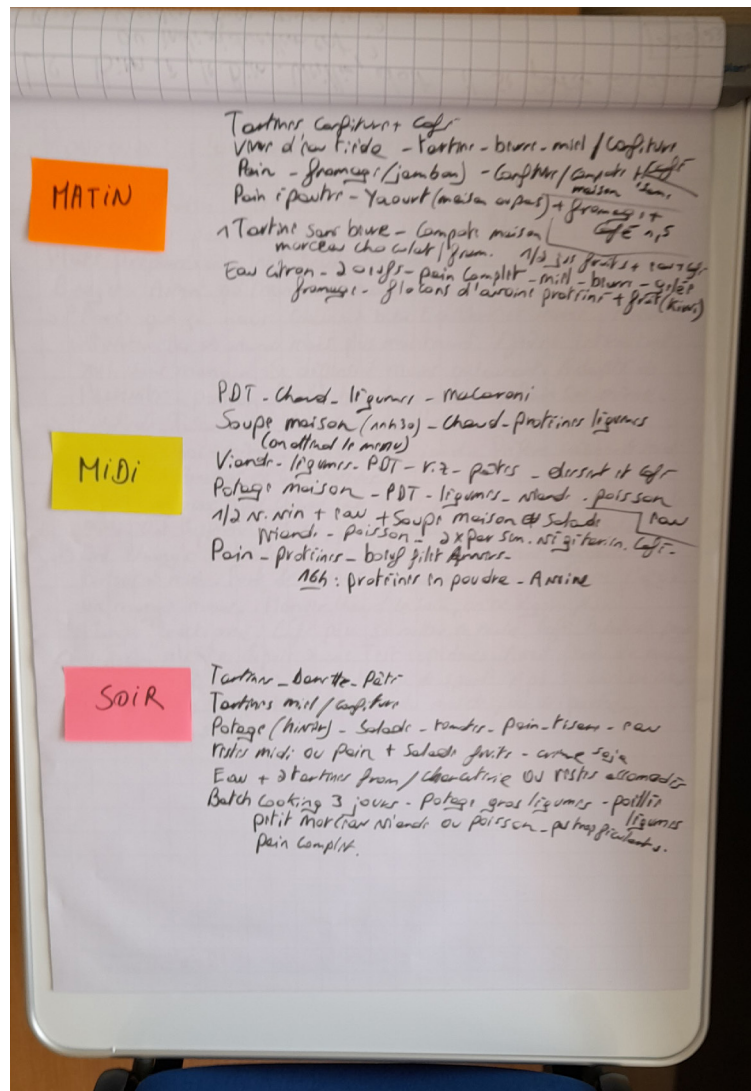 MATiN
Tartines confiture + café
Verre d'eau tiède - tartine - beurre - miel / confiture
Pain - fromage / jambon) - confiture / compote + café
maison
Pain épautre - Yaourt (maison ou pas) + fromage +
café
1 Tartine sans beurre - Compote maison
morceau chocolat / from. 1/2 jus fruits + eau + café
Eau citron - 2 oeufs - pain complet - miel - beurre - gelée
fromage - flocons d'avoine protéiné + fruit (Kiwi)
MiDi
PDT - chaud - légumes - macaroni
Soupe maison (11h30) - chaud - protéines légumes
(on attend le menu)
Viande - légumes - PDT - riz - pâtes - dessert et café
Potage maison - PDT - légumes - viande - poisson
1/2 + eau + Soupe maison ou salade eau
Viande - poisson - 2x par sem. végétarien. Café.
Pain - protéines - boeuf filet
16h : protéines en poudre - Avoine
SOiR
Tartines - - Pâté
Tartines miel / confiture
Potage (hiver) - Salade - tomates - pain - tisane - eau
restes midi ou pain + salade fruits - crème soja
Eau + 2 tartines from / charcuterie ou restes
Batch Cooking 3 jours - Potage gros légumes -
légumes
petit morceau viande ou poisson - pas trop féculents.
pain complet.